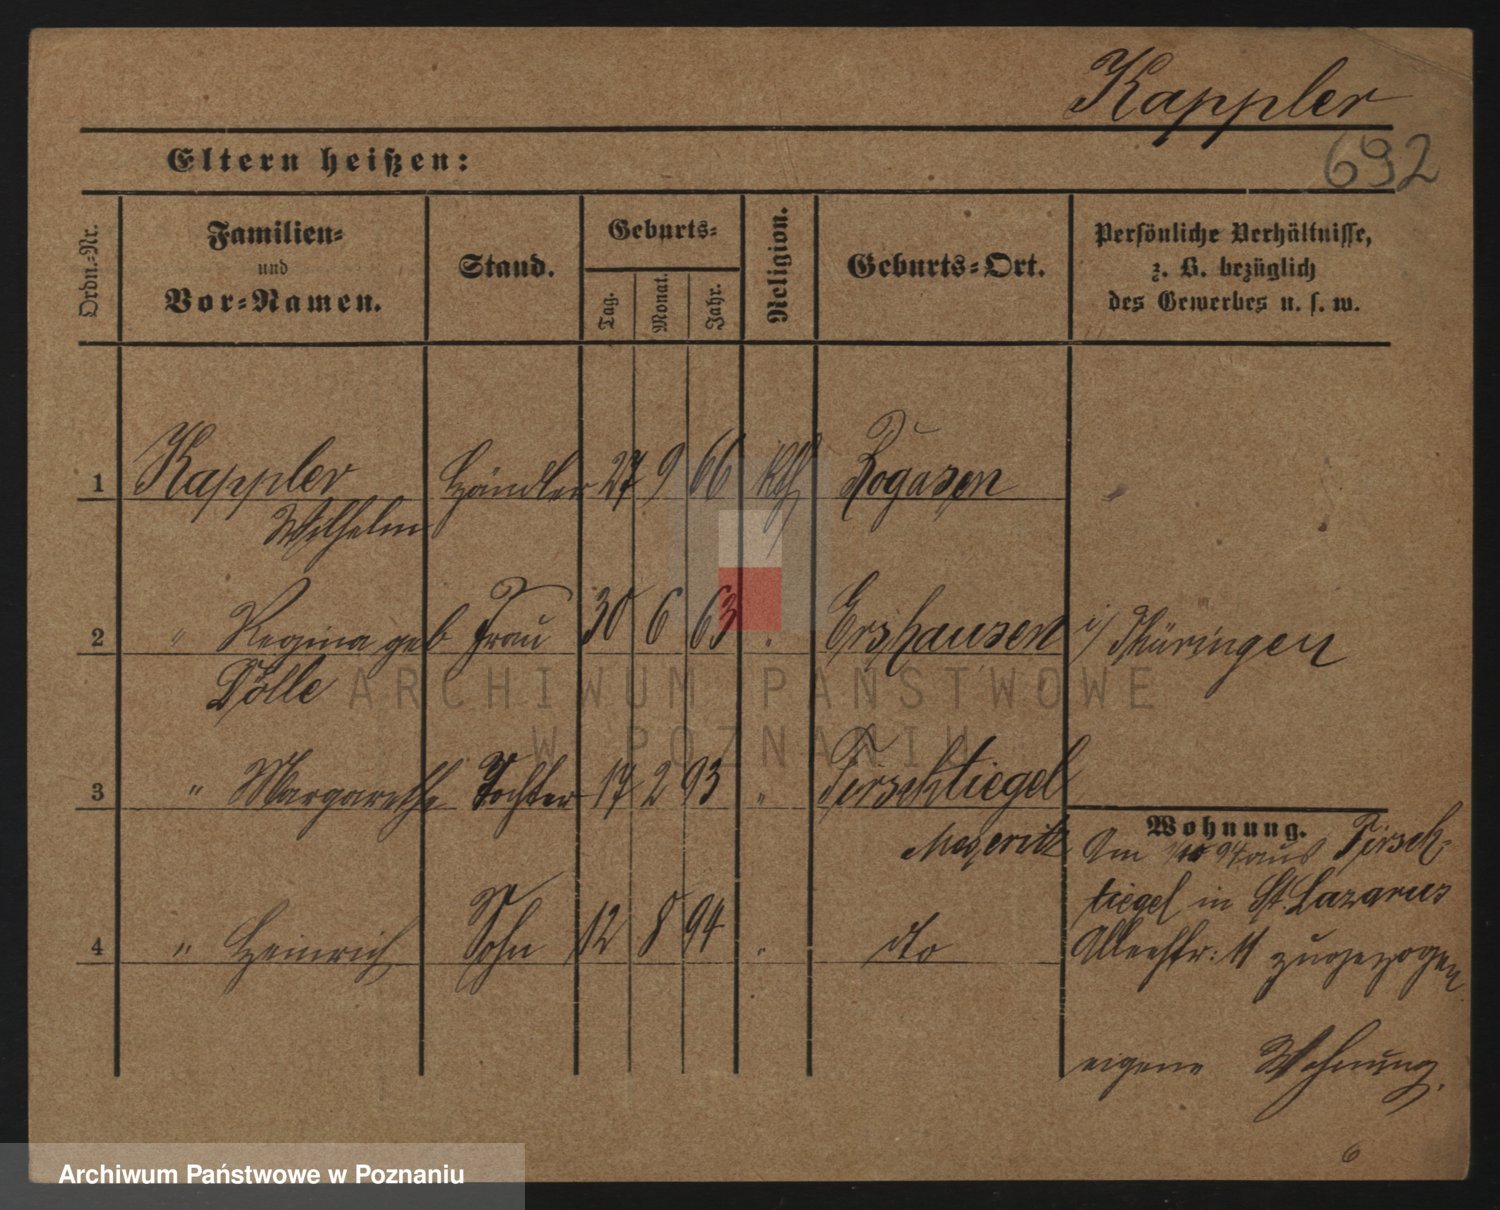 Kappler
692
Eltern heißen:
Ordn.-Nr.
Familien-
und
Vor-Namen.
Stand.
Geburts-
Tag.
Monat.
Jahr.
Religion.
Geburts-Ort.
Persönliche Verhältnisse,
z. B. bezüglich
des Gewerbes u. s. w.
1 Kappler Händler 27 9 66 kth Rogasen
Wilhelm
2 " Regina geb Frau 30 6 63 " Ershausen i/ Thüringen
Dölle
3 " Margarethe Tochter 17 2 93 " Tirschtiegel
Meseritz
4 " Heinrich Sohn 12 8 94 " dto
Wohnung.
Am 94 aus Tirsch-
tiegel in St. Lazarus
zugezogen
eigene Wohnung.
6
ARCHIWUM PAŃSTWOWE
W POZNANIU
Archiwum Państwowe w Poznaniu